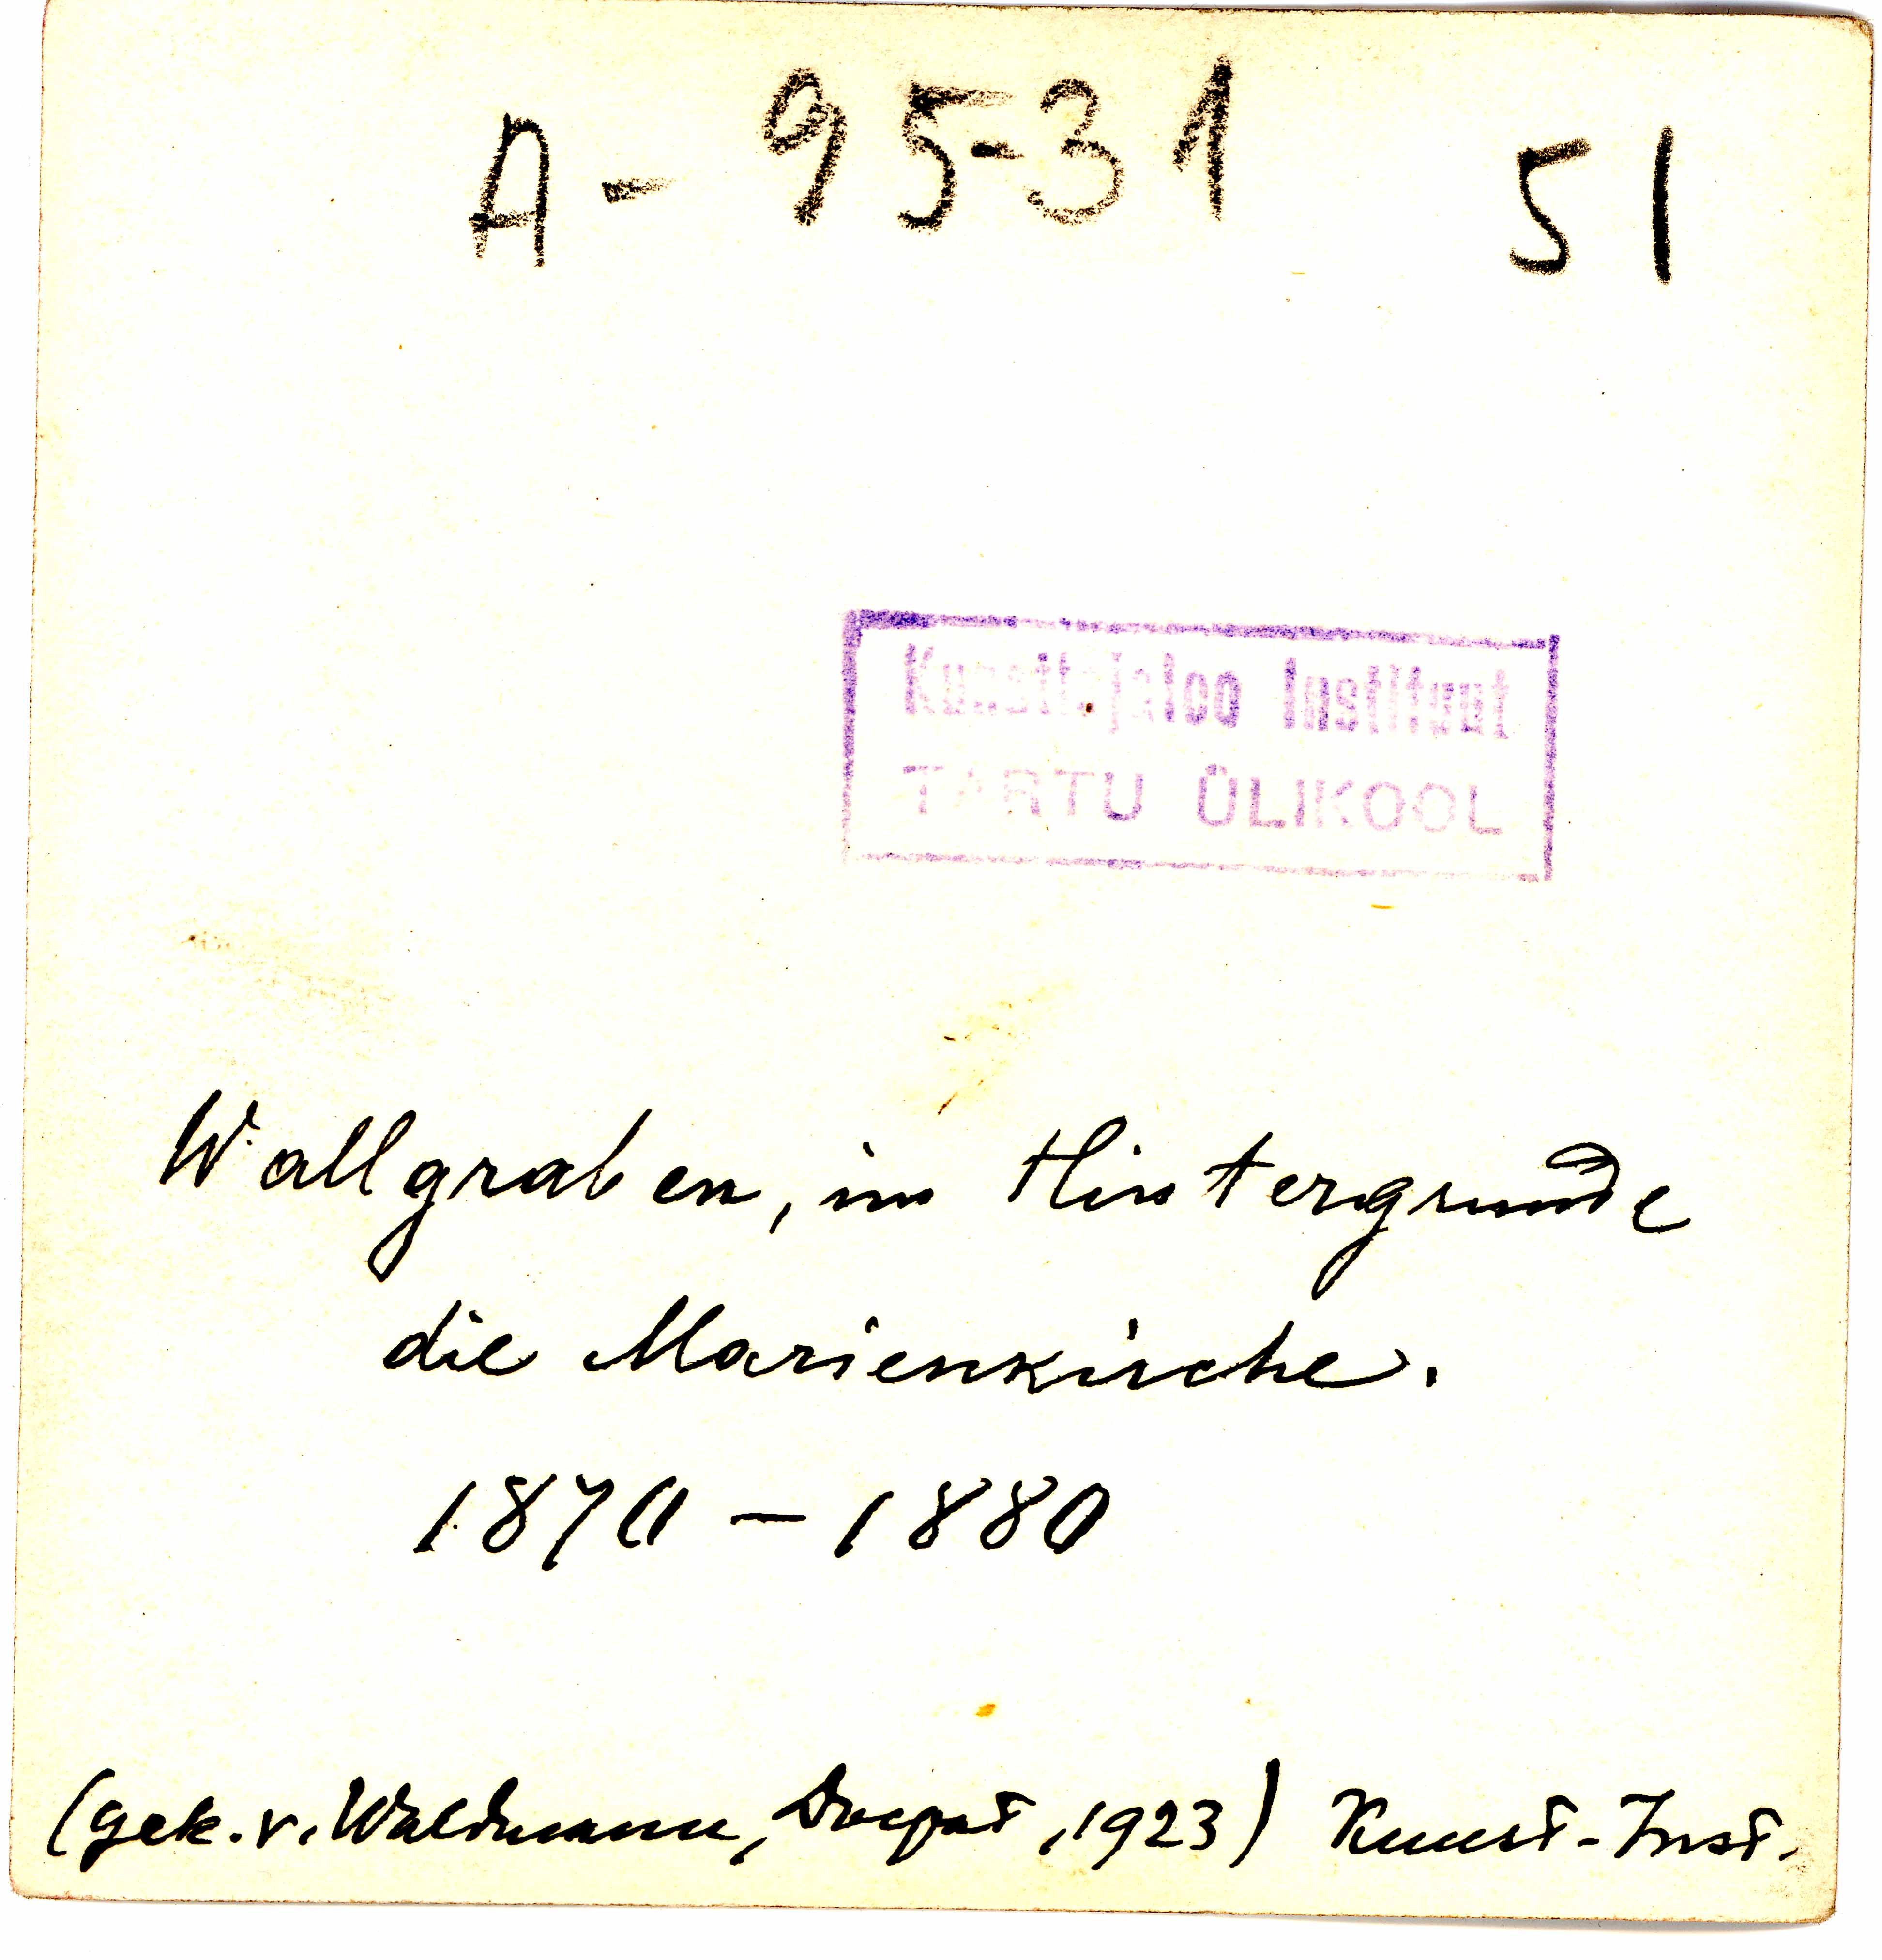 A - 95-31 51
Kunstiajaloo Instituut
TARTU ÜLIKOOL
Wallgraben, im Hintergrunde
die Marienkirche.
1870 - 1880
(gek. v. Waldmann, Dorpat, 1923) Kunst-Inst.